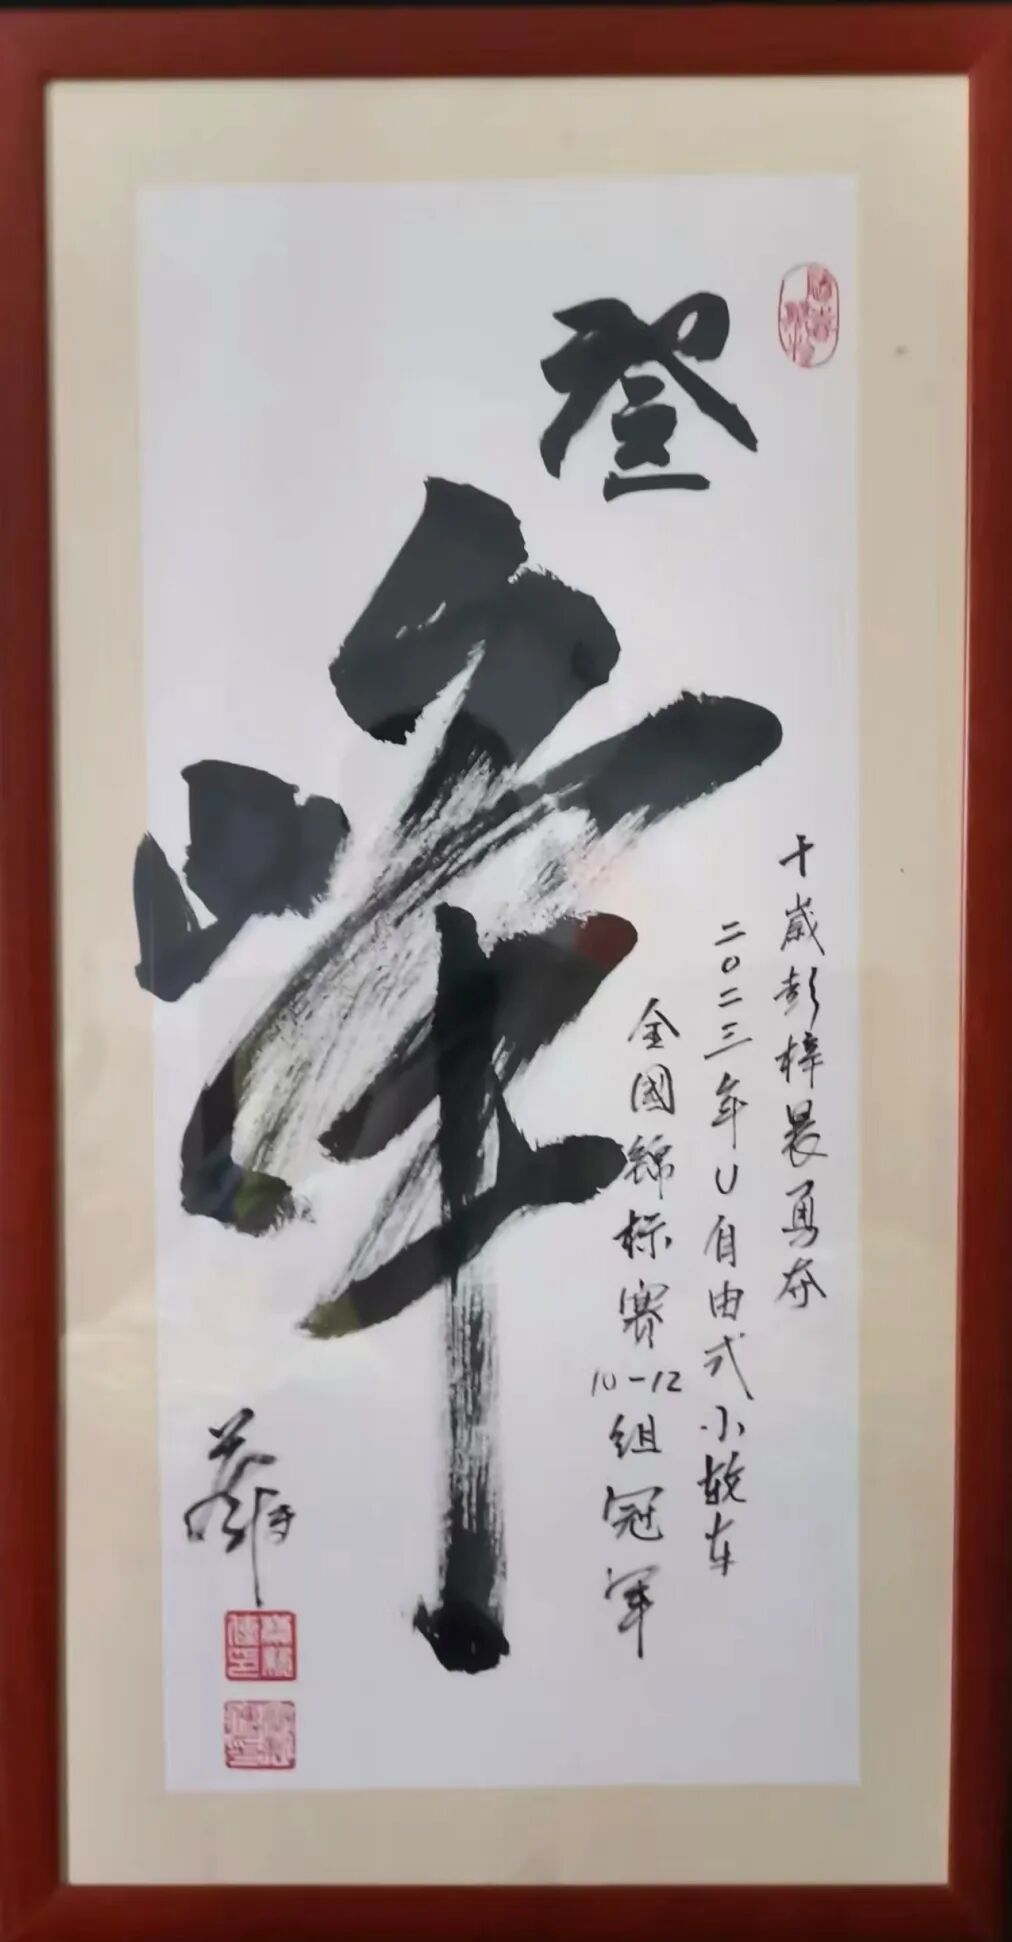 登峰
十歲彭梓晨勇夺
二〇二三年U自由式小轮车
全國锦标赛10-12组冠军